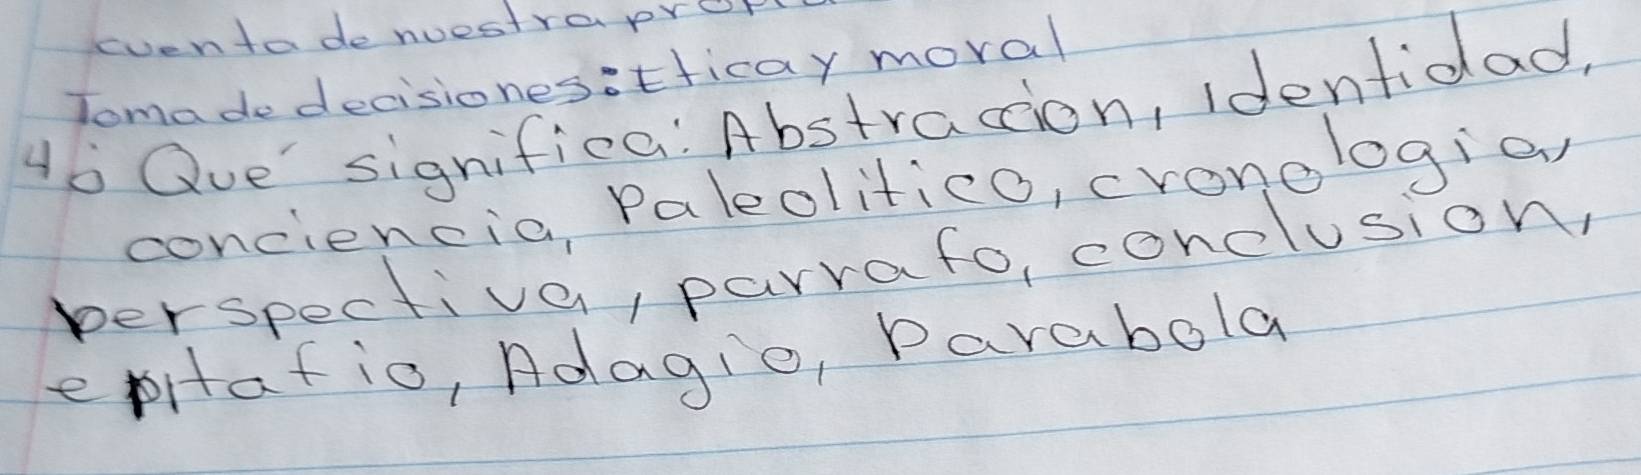 cuenta de nuestra
Toma de decisiones: Etica y moral
4¿ Qué significa: Abstraccion, Identidad,
conciencia, Paleolitico, cronologia,
perspectiva, parrafo, conclusion,
epitafio, Adagio, Parabola